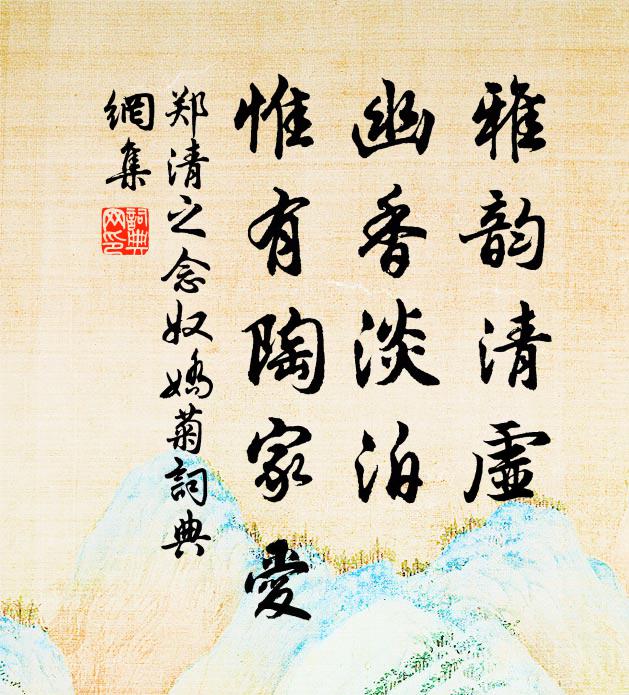 雅韵清虚
幽香淡泊
惟有陶家爱
郑清之念奴娇菊詞典
網集
詞典
网印